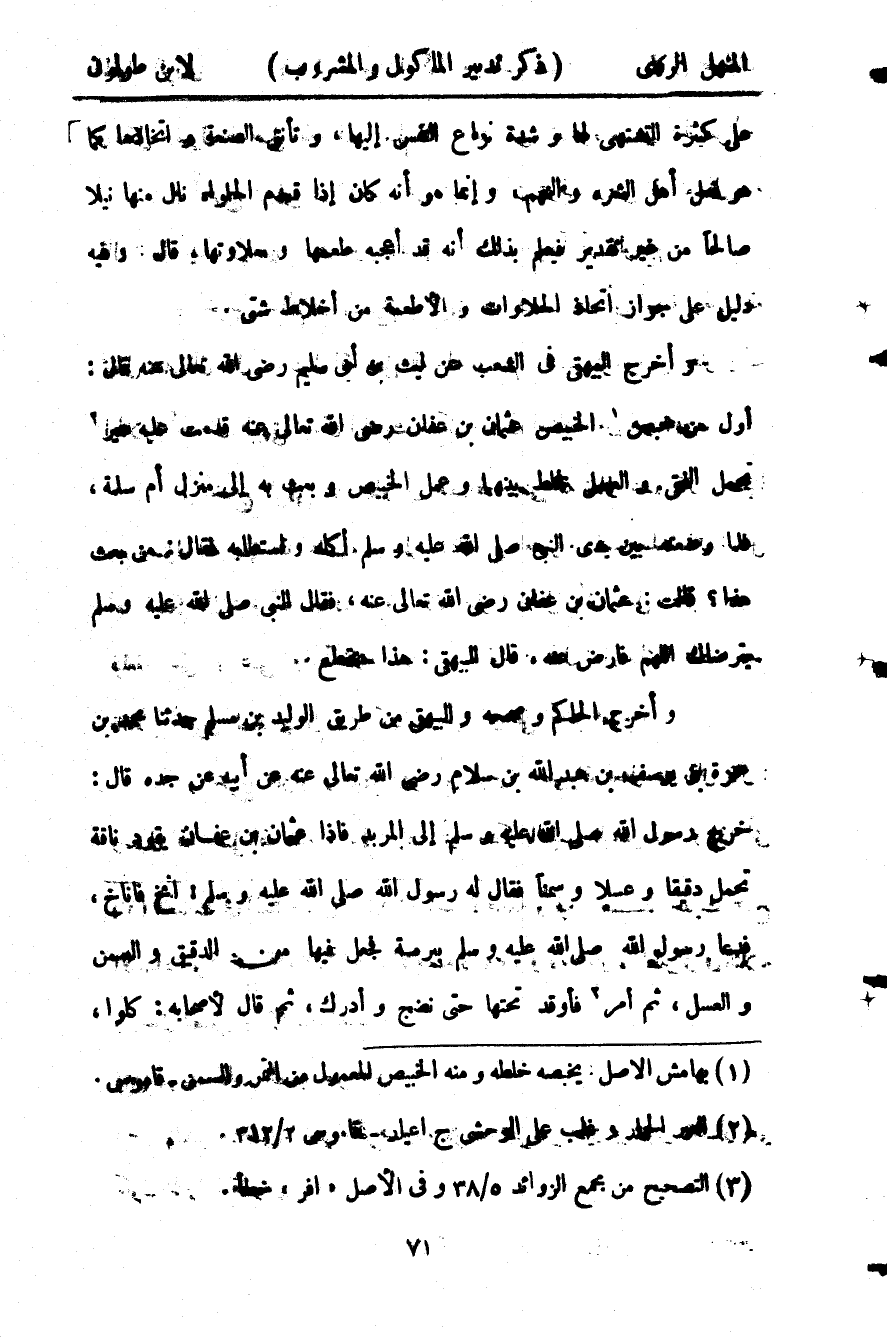 المنهل الروى (ذكر تدبير المأكول و المشروب) لابن طولون
على كثرة التشهى لها و شدة نزاع النفس إليها، و تأنق الصنعة و اتخاذها كما
هو فعل أهل الشره و النهم، و إنما هو أنه كان إذا قدم الحلواء نال منها نيلا
صالحا من غير تقدير فيعلم بذلك أنه قد أعجبه طعمها و حلاوتها، قال: و فيه
دليل على جواز اتخاذ الحلاوات و الأطعمة من أخلاط شتى.
و أخرج البيهقى فى الشعب عن ليث بن أبى سليم رضى الله تعالى عنه قال:
أول من خبص ١ الخبيص عثمان بن عفان رضى الله تعالى عنه قدمت عليه عير ٢
تحمل النقى و العسل فخلط بينهما و عمل الخبيص و بعث به إلى منزل أم سلمة،
فلما وضعته بين يدى النبى صلى الله عليه و سلم أكله و استطابه فقال: من بعث
هذا؟ قالت: عثمان بن عفان رضى الله تعالى عنه، فقال النبى صلى الله عليه وسلم
يترضاك اللهم فارض عنه. قال البيهقى: هذا منقطع.
و أخرج الحاكم و صححه و البيهقى من طريق الوليد بن مسلم حدثنا محمد بن
حمزة بن يوسف بن عبد الله بن سلام رضى الله تعالى عنه عن أبيه عن جده قال:
خرج رسول الله صلى الله عليه و سلم إلى المربد فاذا عثمان بن عفان يقود ناقة
تحمل دقيقا و عسلا و سمنا فقال له رسول الله صلى الله عليه و سلم: أنخ فاناخ،
فدعا رسول الله صلى الله عليه و سلم ببرمة فجعل فيها من الدقيق و السمن
و العسل، ثم أمر ٣ فأوقد تحتها حتى نضج و أدرك، ثم قال لأصحابه: كلوا،
(١) بهامش الاصل: يخبصه خلطه و منه الخبيص المعمول من التمر والسمن - قاموس.
(٢) العير الحمار و غلب على الوحشى ج اعيار - قاموس
(٣) التصحيح من مجمع الزوائد ٣٨/٥ و فى الأصل «افر» خطأ.
٧١